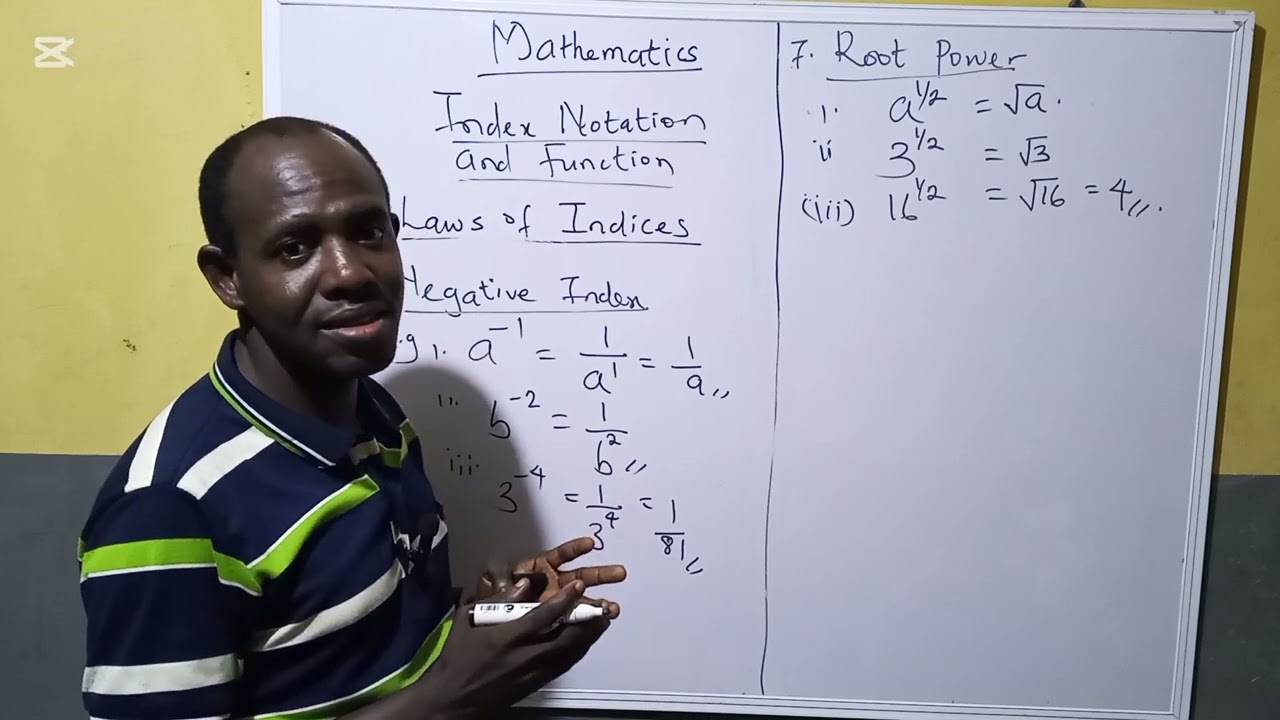 Mathematics
Index Notation
and Function
Laws of Indices
Negative Index
g 1. a⁻¹ = 1/a¹ = 1/a,,
ii. b⁻² = 1/b²,,
iii. 3⁻⁴ = 1/3⁴ = 1/81,,
7. Root Power
i. a^1/2 = √a.
ii 3^1/2 = √3
(iii) 16^1/2 = √16 = 4,,.